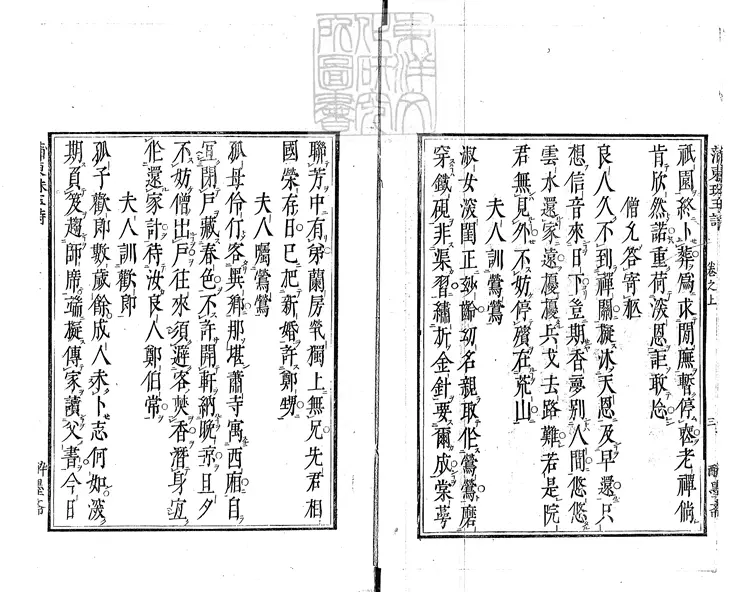 蒲東珠玉詩 卷之上 三 醉墨齋
祇園終卜葬爲求閒廡暫停喪老禪倘
肯欣然諾重荷深恩詎敢忘
僧允答寄柩
良人久不到禪關擬沐天恩及早還只
想信音來日下豈期香夢別人間悠悠
雲水還家遠擾擾兵戈去路難若是院
君無見外不妨停殯在荒山
夫人訓鶯鶯
淑女深閨正妙齡初名親取作鶯鶯磨
穿鐵硯非渠習繡折金針要爾成棠萼
聯芳中有弟蘭房筑獨上無兄先君相
國榮存日已把新婚許鄭甥
夫人屬鶯鶯
孤母伶仃客異鄉那堪蕭寺寓西廂自
宜閉戶藏春色不許開軒納晚凉旦夕
不妨僧出戶往來須避客焚香潛身宜
作還家計待汝良人鄭伯常
夫人訓歡郎
孤子歡郎數歲餘成人未卜志何如深
期負笈趨師席端擬傳家讀父書今日
蒲東珠玉詩 醉墨齋